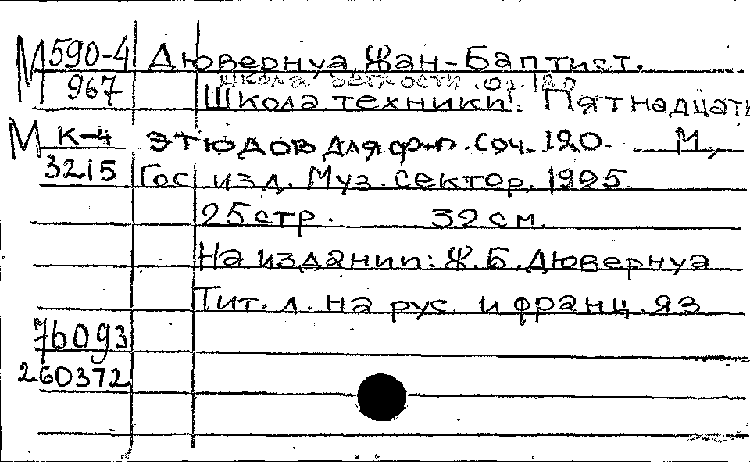 М 590-4 Дювернуа Жан-Баптист.
967 Школа беглости. Оp. 120
Школа техники. Пятнадцать
М К-4 этюдов для ф-п. Соч. 120. М,
3215 Гос. изд. Муз. сектор, 1925
25 стр. 32 см.
На издании: Ж.Б. Дювернуа
Тит. л. на рус. и франц. яз
76093
260372